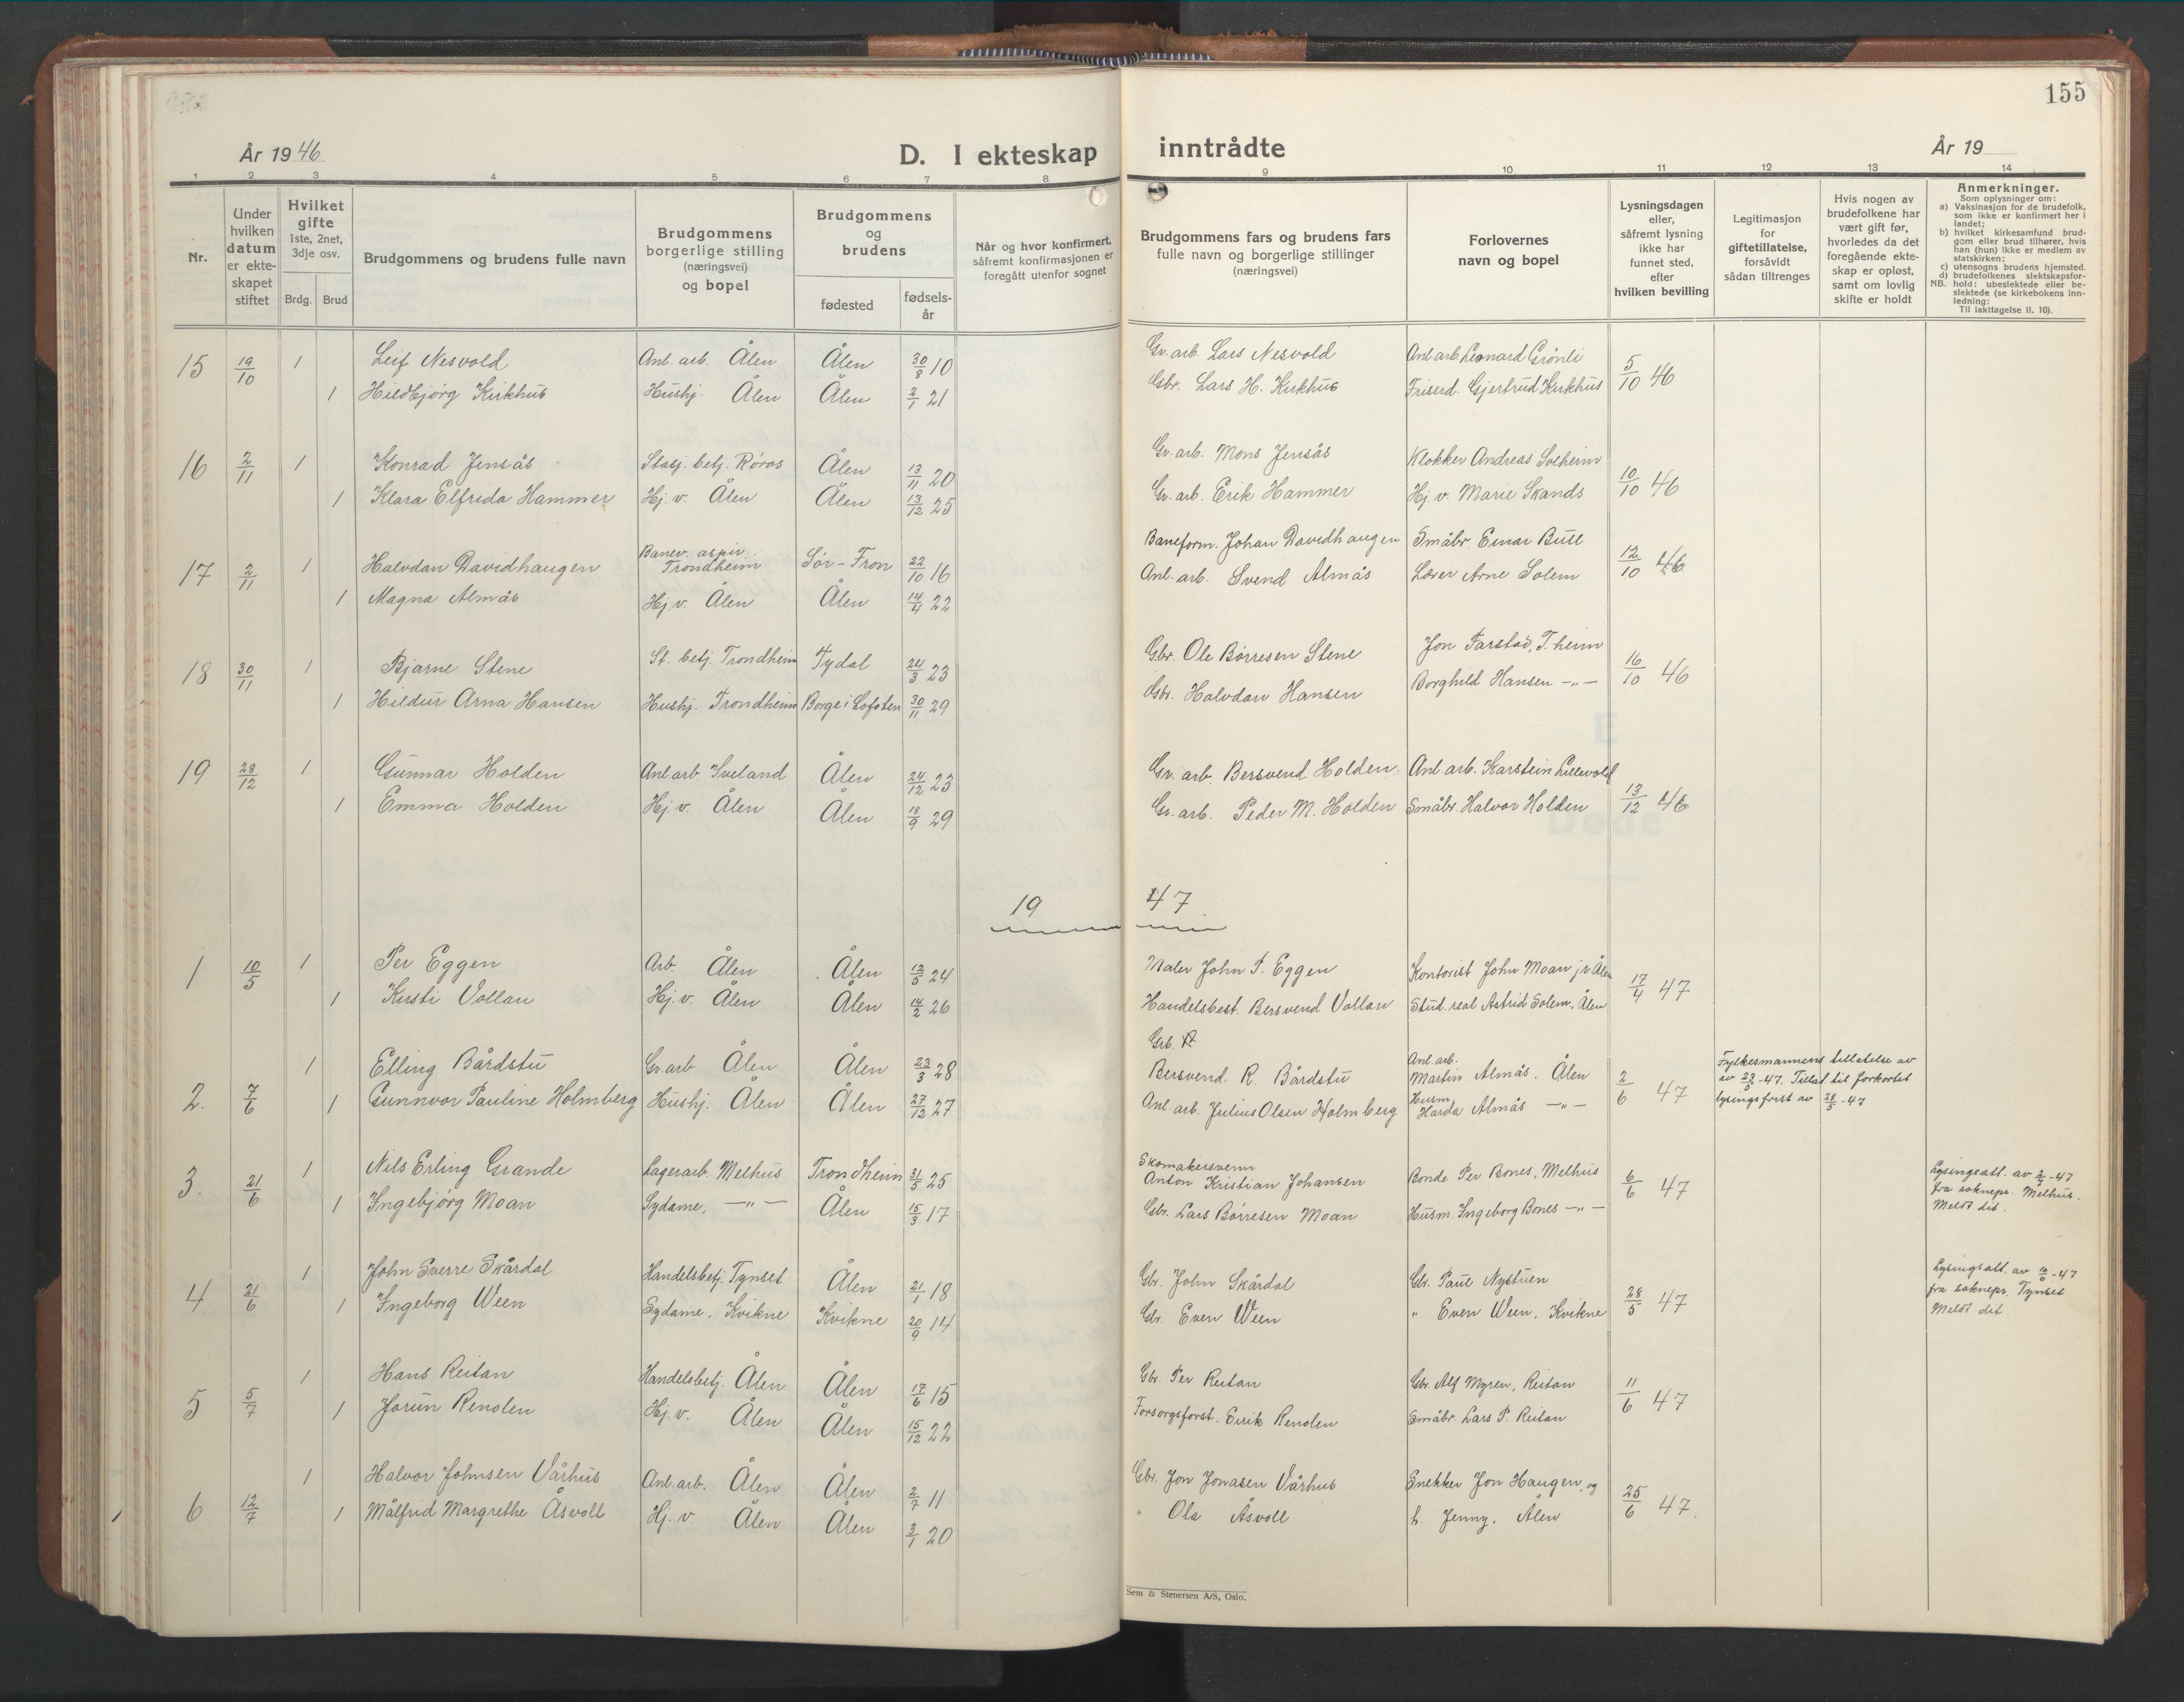 155
År 1946
D. I ekteskap inntrådte
År 19
1 2 3 4 5 6 7 8 9 10 11 12 13 14
Nr.
Under hvilken datum er ekteskapet stiftet
Hvilket gifte
1ste, 2net, 3dje osv.
Brdg. Brud
Brudgommens og brudens fulle navn
Brudgommens borgerlige stilling (næringsvei) og bopel
Brudgommens og brudens
fødested
fødselsår
Når og hvor konfirmert, såfremt konfirmasjonen er foregått utenfor sognet
Brudgommens fars og brudens fars fulle navn og borgerlige stillinger (næringsvei)
Forlovernes navn og bopel
Lysningsdagen eller, såfremt lysning ikke har funnet sted, efter hvilken bevilling
Legitimasjon for giftetillatelse, forsåvidt sådan tiltrenges
Hvis nogen av brudefolkene har vært gift før, hvorledes da det foregående ekteskap er opløst, samt om lovlig skifte er holdt
Anmerkninger.
Som oplysninger om:
a) Vaksinasjon for de brudefolk, som ikke er konfirmert her i landet;
b) hvilket kirkesamfund brudgom eller brud tilhører, hvis han (hun) ikke er medlem av statskirken;
c) utensogns brudens hjemsted.
d) brudefolkenes slektskapsfor-
NB. hold: ubeslektede eller beslektede (se kirkebokens innledning:
Til iakttagelse II. 10).
15 19/10 1 Leif Nesvold Anl. arb. Ålen Ålen 30/8 10 Gr. arb. Lars Nesvold Anl. arb. Leonard Grønli 5/10 46
1 Hildbjørg Kirkhus Hushj. Ålen Ålen 2/1 21 Gbr. Lars H. Kirkhus Friserd. Gjertrud Kirkhus
16 2/11 1 Konrad Jensås Stasj. betj. Røros Ålen 13/11 20 Gr. arb. Mons Jensås Klokker Andreas Solheim 10/10 46
1 Klara Elfrida Hammer Hj. v. Ålen Ålen 13/12 25 Gr. arb. Erik Hammer Hj. v. Marie Skands
17 2/11 1 Halvdan Davidhaugen Banev. aspir. Trondheim Sør-Fron 22/10 16 Baneform. Johan Davidhaugen Småbr. Einar Bull 12/10 46
1 Magna Almås Hj. v. Ålen Ålen 14/4 22 Anl. arb. Svend Almås Lærer Arne Solem
18 30/11 1 Bjarne Stene St. betj. Trondheim Tydal 24/3 23 Gbr. Ole Børresen Stene Jon Farstad, T.heim 16/10 46
1 Hildur Arna Hansen Hushj. Trondheim Borge i Lofoten 30/11 29 Gbr. Halvdan Hansen Borghild Hansen -"-
19 28/12 1 Gunnar Holden Anl. arb. Sveland Ålen 24/12 23 Gr. arb. Bersvend Holden Anl. arb. Karstein Lillevold 13/12 46
1 Emma Holden Hj. v. Ålen Ålen 18/9 29 Gr. arb. Peder M. Holden Småbr. Halvor Holden
19 47
1 10/5 1 Per Eggen Arb. Ålen Ålen 12/5 24 Maler John P. Eggen Kontorist John Moan jr Ålen 17/4 47
1 Kirsti Vollan Hj. v. Ålen Ålen 14/2 26 Handelsbest. Bersvend Vollan Stud. real Astrid Solem, Ålen
2. 7/6 1 Elling Bårdstu Gr. arb Ålen Ålen 23/3 28 Grb. Bersvend R. Bårdstu Anl. arb. Martin Almås. Ålen 2/6 47 Fylkesmannens tillatelse av
av 23/5-47. Tillat. til forkortet
lysingsfrist av 28/5-47
1 Gunnvor Pauline Holmberg Hushj. Ålen Ålen 27/12 27 Anl. arb. Julius Olsen Holmberg Husm. Harda Almås -"-
3. 21/6 1 Nils Erling Grande Lagerarb. Melhus Trondheim 31/5 25 Skomakersvenn Anton Kristian Johansen Bonde Per Bones, Melhus 6/6 47 Lysingsatt. av 2/7-47
fra soknepr. Melhus.
Meldt dit.
1 Ingebjørg Moan Sydame, -"- Ålen 15/3 17 Gbr. Lars Børresen Moan Husm. Ingeborg Bones -"-
4 21/6 1 John Sverre Skårdal Handelsbetj. Tynset Ålen 21/1 18 Gbr. John Skårdal Gbr. Paul Nystuen 28/5 47 Lysingsatt. av 10/6-47
fra soknepr. Tynset
Meldt dit.
1 Ingeborg Ween Sydame, Kvikne Kvikne 20/9 14 Gbr. Even Ween " Even Ween, Kvikne
5 5/7 1 Hans Reitan Handelsbetj. Ålen Ålen 17/6 15 Gbr. Per Reitan Gbr. Alf Myren, Reitan 11/6 47
1 Jorun Renolen Hj. v. Ålen Ålen 15/12 22 Forsorgsforst. Eirik Renolen Småbr. Lars P. Reitan
6 12/7 1 Halvor Johnsen Vårhus Anl. arb. Ålen Ålen 2/7 11 Gbr. Jon Jonasen Vårhus Snekker Jon Haugen, og 25/6 47.
1 Målfrid Margrethe Åsvoll Hj. v. Ålen Ålen 3/1 20 " Ola Åsvoll h. Jenny, Ålen
Sem & Stenersen A/S, Oslo.